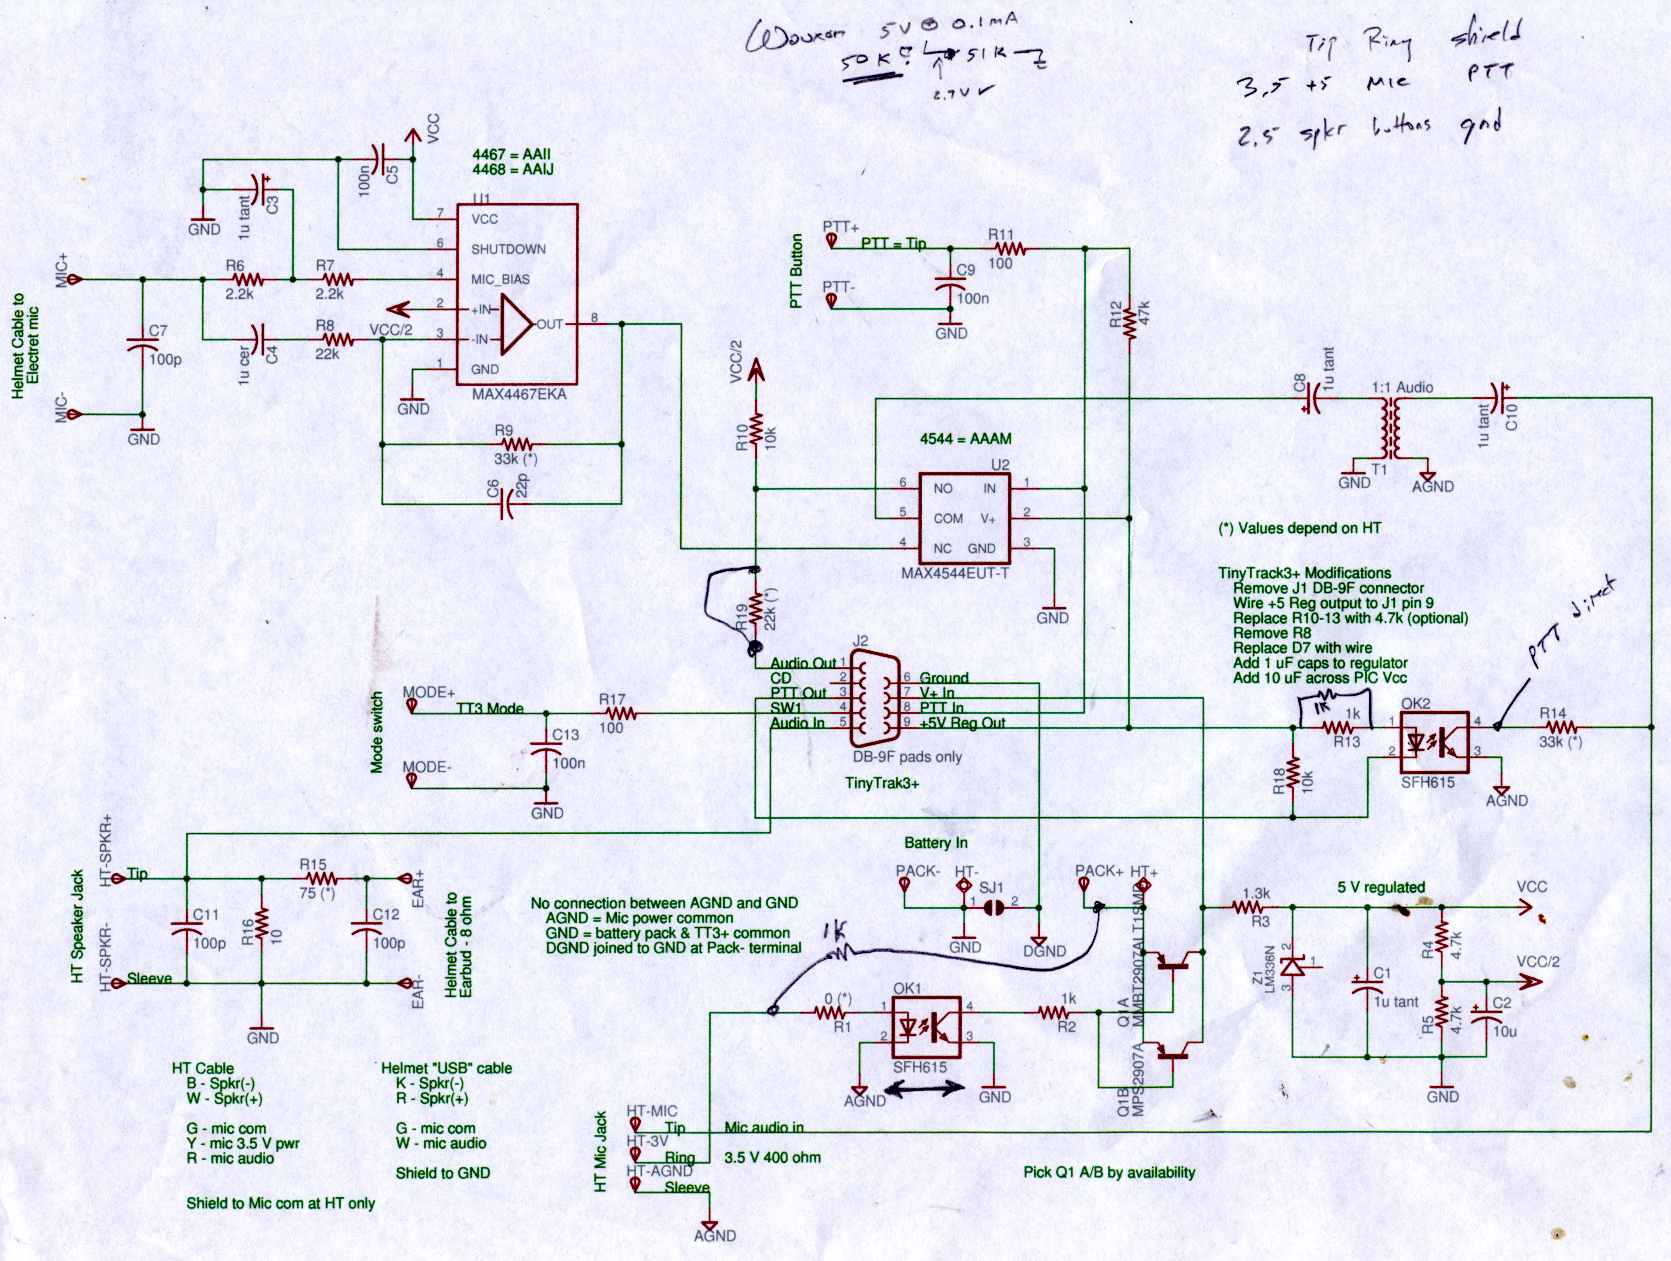 5V @ 0.1mA
50K ? 51K
2.7V ✓
Tip Ring shield
3.5 +5 mic PTT
2.5 spkr buttons gnd
VCC
100n
C5
4467 = AAII
4468 = AAIJ
GND
1u tant
C3
U1
7 VCC
6 SHUTDOWN
4 MIC_BIAS
2 +IN
3 -IN
OUT 8
1 GND
MAX4467EKA
MIC+
R6
2.2k
R7
2.2k
Helmet Cable to
Electret mic
C7
100p
1u cer
C4
R8
22k
VCC/2
MIC-
GND
GND
R9
33k (*)
C6
22p
PTT Button
PTT+
PTT = Tip
R11
100
C9
100n
PTT-
GND
R12
47k
VCC/2
R10
10k
4544 = AAAM
U2
6 NO IN 1
5 COM V+ 2
4 NC GND 3
MAX4544EUT-T
GND
C8
1u tant
1:1 Audio
T1
GND
AGND
1u tant
C10
(*) Values depend on HT
TinyTrack3+ Modifications
Remove J1 DB-9F connector
Wire +5 Reg output to J1 pin 9
Replace R10-13 with 4.7k (optional)
Remove R8
Replace D7 with wire
Add 1 uF caps to regulator
Add 10 uF across PIC Vcc
PTT direct
R19
22k (*)
J2
Audio Out 1
CD 2
PTT Out 3
SW1 4
Audio In 5
6 Ground
7 V+ In
8 PTT In
9 +5V Reg Out
DB-9F pads only
TinyTrak3+
Mode switch
MODE+
TT3 Mode
R17
100
C13
100n
MODE-
GND
1K
1k
R13
R18
10k
OK2
1
2
4
3
SFH615
R14
33k (*)
AGND
HT Speaker Jack
HT-SPKR+
Tip
R15
75 (*)
EAR+
C11
100p
R16
10
C12
100p
HT-SPKR-
Sleeve
EAR-
GND
Helmet Cable to
Earbud - 8 ohm
No connection between AGND and GND
AGND = Mic power common
GND = battery pack & TT3+ common
DGND joined to GND at Pack- terminal
Battery In
PACK-
HT-
SJ1
1 2
GND
DGND
PACK+
HT+
1K
0 (*)
R1
OK1
1
2
4
3
SFH615
AGND
GND
1k
R2
Q1A
MMBT2907ALT1SMD
Q1B
MPS2907A
1.3k
R3
5 V regulated
VCC
Z1
LM336N
2
1
3
C1
1u tant
R4
4.7k
VCC/2
R5
4.7k
C2
10u
GND
HT Cable
B - Spkr(-)
W - Spkr(+)
G - mic com
Y - mic 3.5 V pwr
R - mic audio
Shield to Mic com at HT only
Helmet "USB" cable
K - Spkr(-)
R - Spkr(+)
G - mic com
W - mic audio
Shield to GND
HT Mic Jack
HT-MIC
Tip Mic audio in
HT-3V
Ring 3.5 V 400 ohm
HT-AGND
Sleeve
AGND
Pick Q1 A/B by availability